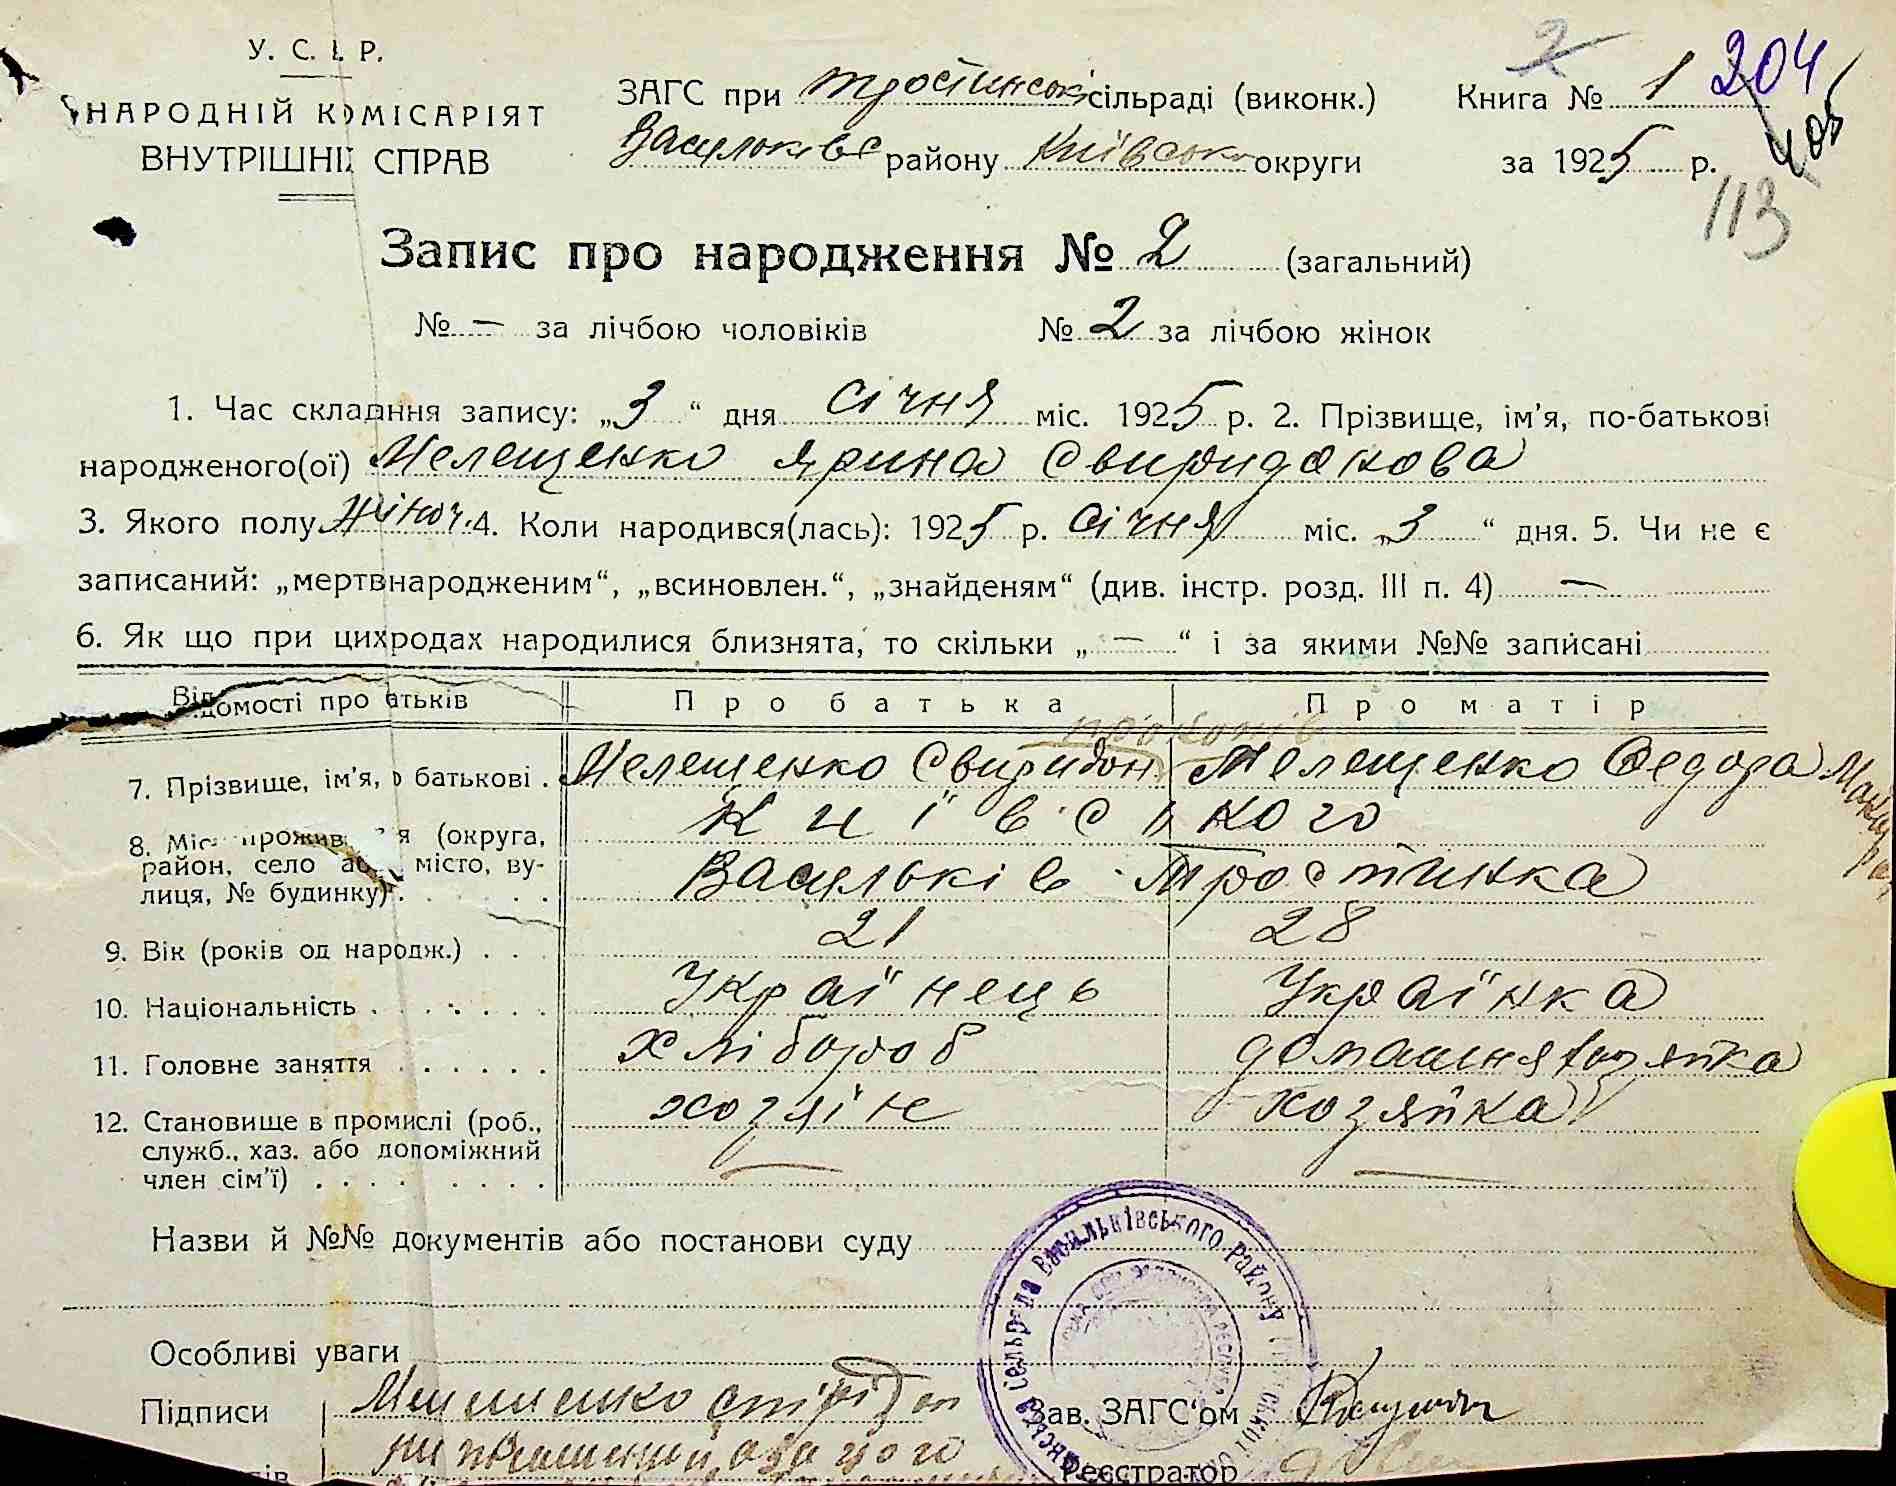 У. С. Р. Р.
НАРОДНІЙ КОМІСАРІЯТ
ВНУТРІШНІХ СПРАВ
ЗАГС при Тростинські сільраді (виконк.)
Васильківс району Київсько округи
Книга № 1 204
за 1925 р.
113
Запис про народження № 2 (загальний)
№ — за лічбою чоловіків № 2 за лічбою жінок
1. Час складання запису: „3“ дня січня міс. 1925 р. 2. Прізвище, ім'я, по-батькові
народженого(ої) Мелещенко Ярина Свиридонова
3. Якого полу жіноч. 4. Коли народився(лась): 1925 р. січня міс. „3“ дня. 5. Чи не є
записаний: „мертвнародженим“, „всиновлен.“, „знайденям“ (див. інстр. розд. III п. 4) —
6. Як що при цих родах народилися близнята, то скільки „—“ і за якими №№ записані
Відомості про батьків Про батька Про матір
7. Прізвище, ім'я, по батькові . Мелещенко Свиридон Мелещенко Федора
8. Місце проживання (округа, Київського
район, село або місто, ву- Васильків Тростинка
лиця, № будинку)
9. Вік (років од народж.) . . . 21 28
10. Національність . . . . . . Українець Українка
11. Головне заняття . . . . . . хлібороб домашня хозяйка
12. Становище в промислі (роб., хозяін хозяйка
служб., хаз. або допоміжний
член сім'ї) . . . . . . . . — —
Назви й №№ документів або постанови суду
Особливі уваги
Підписи
Зав. ЗАГС'ом
Реєстратор
сельрада Васильківського району